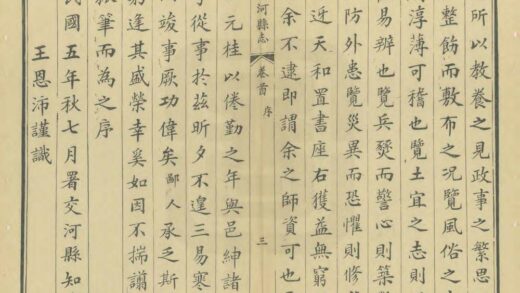 所以教養之見政事之繁思
整飭而敷布之况覽風俗之
淳薄可稽也覽土宜之志則
易辨也覽兵燹而警心則築
防外患覽災異而恐懼則修
近天和置書座右獲益無窮
余不逮即謂余之師資可也
河縣志 卷首 序 三
元桂以倦勤之年與邑紳諸
子從事於茲昕夕不遑三易寒
竣事厥功偉矣鄙人承乏斯
躬逢其盛榮幸奚如因不揣譾
筆而為之序
民國五年秋七月署交河縣知
王恩沛謹識